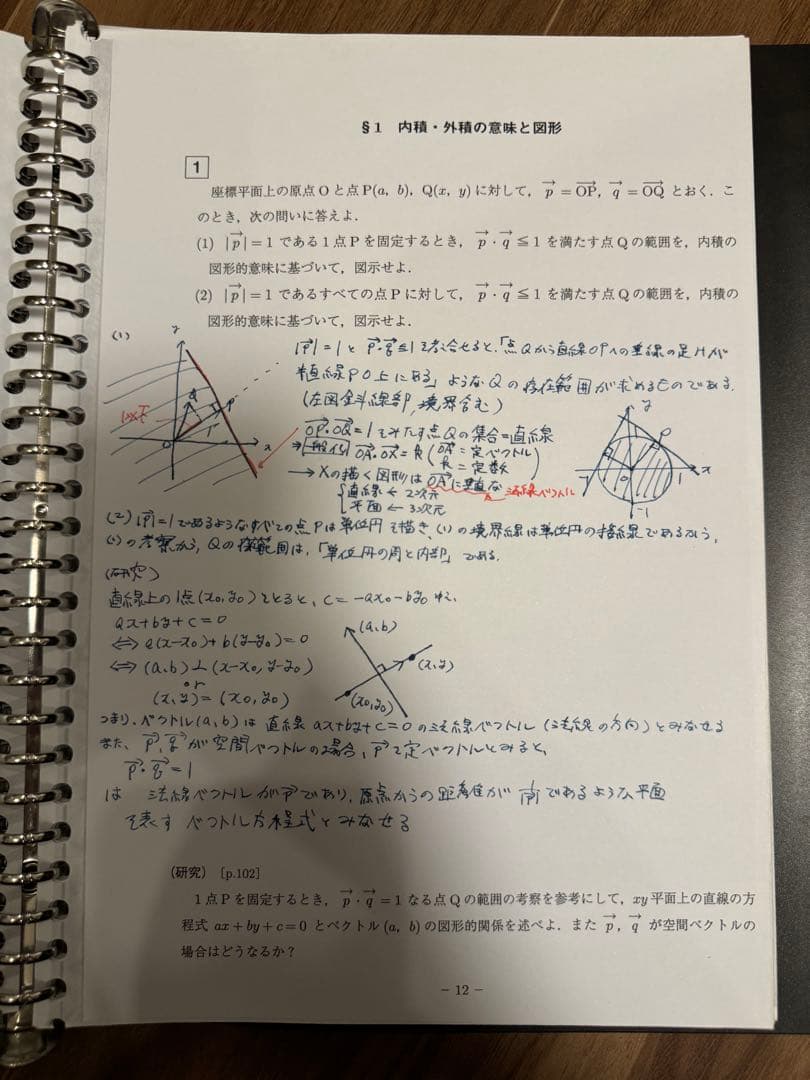 §1 内積・外積の意味と図形
1
座標平面上の原点Oと点P(a, b), Q(x, y)に対して, p→ = OP→, q→ = OQ→ とおく. こ
のとき, 次の問いに答えよ.
(1) |p→| = 1 である1点Pを固定するとき, p→・q→ ≦ 1 を満たす点Qの範囲を, 内積の
図形的意味に基づいて, 図示せよ.
(2) |p→| = 1 であるすべての点Pに対して, p→・q→ ≦ 1 を満たす点Qの範囲を, 内積の
図形的意味に基づいて, 図示せよ.
(1)
y
Q
P
O
1
x
|p→|=1と p→・q→≦1を考え合せると、「点Qから直線OPへの垂線の足Hが
半直線PO上にある」ようなQの存在範囲が求めるものである.
(左図斜線部, 境界含む)
OP→・OQ→=1をみたす点Qの集合=直線
⇒一般化 OA→・OX→=k (OA→=定ベクトル
k=定数)
→Xの描く図形はOA→に垂直な
法線ベクトル
{直線 ← 2次元
平面 ← 3次元
y
P
-1
O
1
x
-1
(2) |p→|=1であるようなすべての点Pは単位円を描き、(1)の境界線は単位円の接線であるから,
(1)の考察から, Qの範囲は,「単位円の周と内部」である.
(研究)
直線上の1点(x₀,y₀)をとると、c=-ax₀-by₀ ゆえ,
ax+by+c=0
⇔ a(x-x₀)+b(y-y₀)=0
⇔ (a,b)⊥(x-x₀, y-y₀)
or
(x,y)=(x₀,y₀)
(a,b)
(x,y)
(x₀,y₀)
つまり, ベクトル(a,b)は 直線 ax+by+c=0 の法線ベクトル (法線の方向)とみなせる
また、p→,q→が空間ベクトルの場合, p→を定ベクトルとみると,
p→・q→=1
は 法線ベクトルがp→であり, 原点からの距離が 1/|p→| であるような平面
を表す ベクトル方程式とみなせる
(研究) [p.102]
1点Pを固定するとき, p→・q→ = 1 なる点Qの範囲の考察を参考にして, xy平面上の直線の方
程式 ax + by + c = 0 とベクトル(a, b)の図形的関係を述べよ. また p→, q→ が空間ベクトルの
場合はどうなるか？
- 12 -